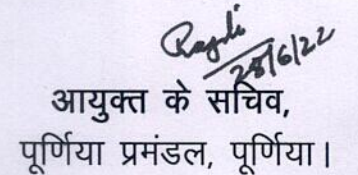 28/6/22
आयुक्त के सचिव,
पूर्णिया प्रमंडल, पूर्णिया।